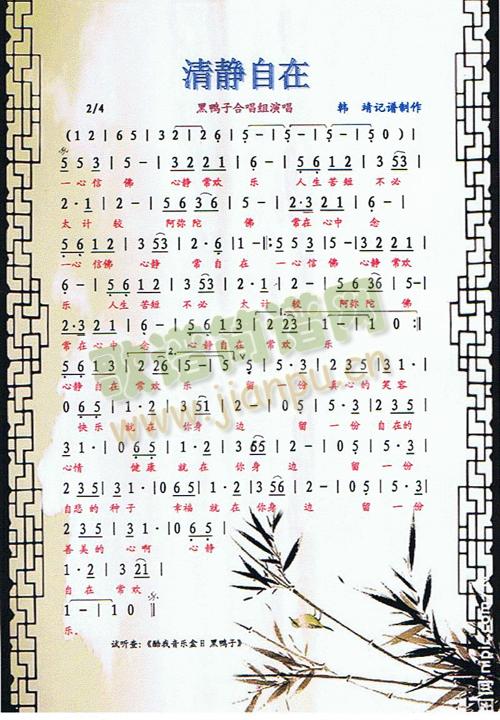 清静自在
2/4 黑鸭子合唱组演唱 韩 靖记谱制作
(1 2 | 6 5 | 3 2 | 2 6 | 5 - | 5 - | 5 - | 5 0) |
5 5 3 | 5 - | 3 2 2 1 | 6 - | 5 6 1 2 | 3 5 3 |
一心信 佛 心静 常欢 乐 人生 苦短 不必
2 · 1 | 2 - | 5 6 3 6 | 5 - | 2 · 3 2 1 | 6 · |
太 计 较 阿弥 陀 佛 常在 心中 念
5 6 1 2 | 3 5 3 | 2 · 6 | 1 - :| 5 5 3 | 5 - | 3 2 2 1 |
一心 信佛 心静 常 自 在 一心信 佛 心静 常欢
6 - | 5 6 1 2 | 3 5 3 | 2 · 1 | 2 - | 5 6 3 6 | 5 - |
乐 人生 苦短 不必 太 计 较 阿弥 陀 佛
2 · 3 2 1 | 6 - | 5 6 1 3 | 2 2 3 | 1 - | 1 0 :|
常在 心中 念 心静 自在 常欢 乐
5 6 1 3 | 2 2 6 | 5 - | 5 - | 5 · 3 | 5 - | 2 3 5 | 3 1 |
心静 自在 常欢 乐 留 一份 真心的 笑容
0 6 5 | 1 · 2 | 3 5 1 | 2 - | 0 5 | 5 · 3 | 2 3 5 |
快乐 就 在 你身 边 留 一 份 自在的
3 1 · | 0 6 5 | 1 · 2 | 3 6 5 | 2 - | 0 5 | 5 · 3 |
心情 健康 就 在 你身 边 留 一份
2 3 5 | 3 1 · | 0 3 5 | 6 · 1 | 3 5 6 | 2 - | 0 5 | 5 · 3 |
自悲的 种子 幸福 就 在 你身 边 留 一份
2 3 5 | 3 1 · | 0 6 5 |
善美的 心啊 心静
1 · 2 | 3 2 1 |
自 在 常欢
1 - | 1 0 ||
乐.
试听至:《酷我音乐盒 黑鸭子》
歌谱简谱网
www.jianpu.cn
nipic.com